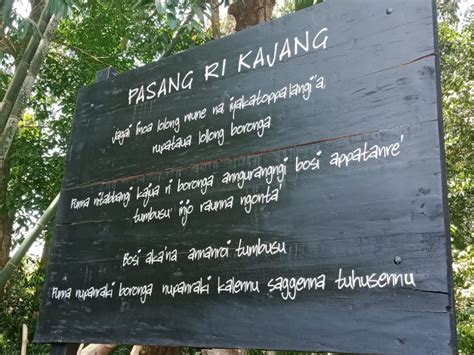 PASANG RI KAJANG
Jagai linoa lolong mune na iyakatoppalangi'a
rupataua lollong boronga
Punna nitabbangi kajua ri boronga anngurangngi bosi appatanre'
tumbusu' injo raunna ngonta'
Bosi aka'na annanroi tumbusu
Punna nupanraki boronga nupanraki kalennu saggenna tuhusennu